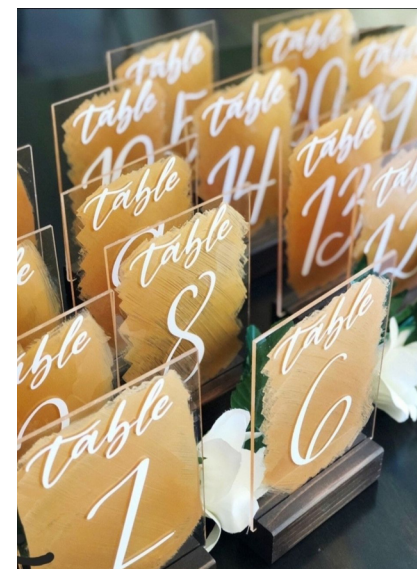 table
15
table
20
table
19
table
10
table
14
table
13
table
12
table
9
table
8
table
table
6
table